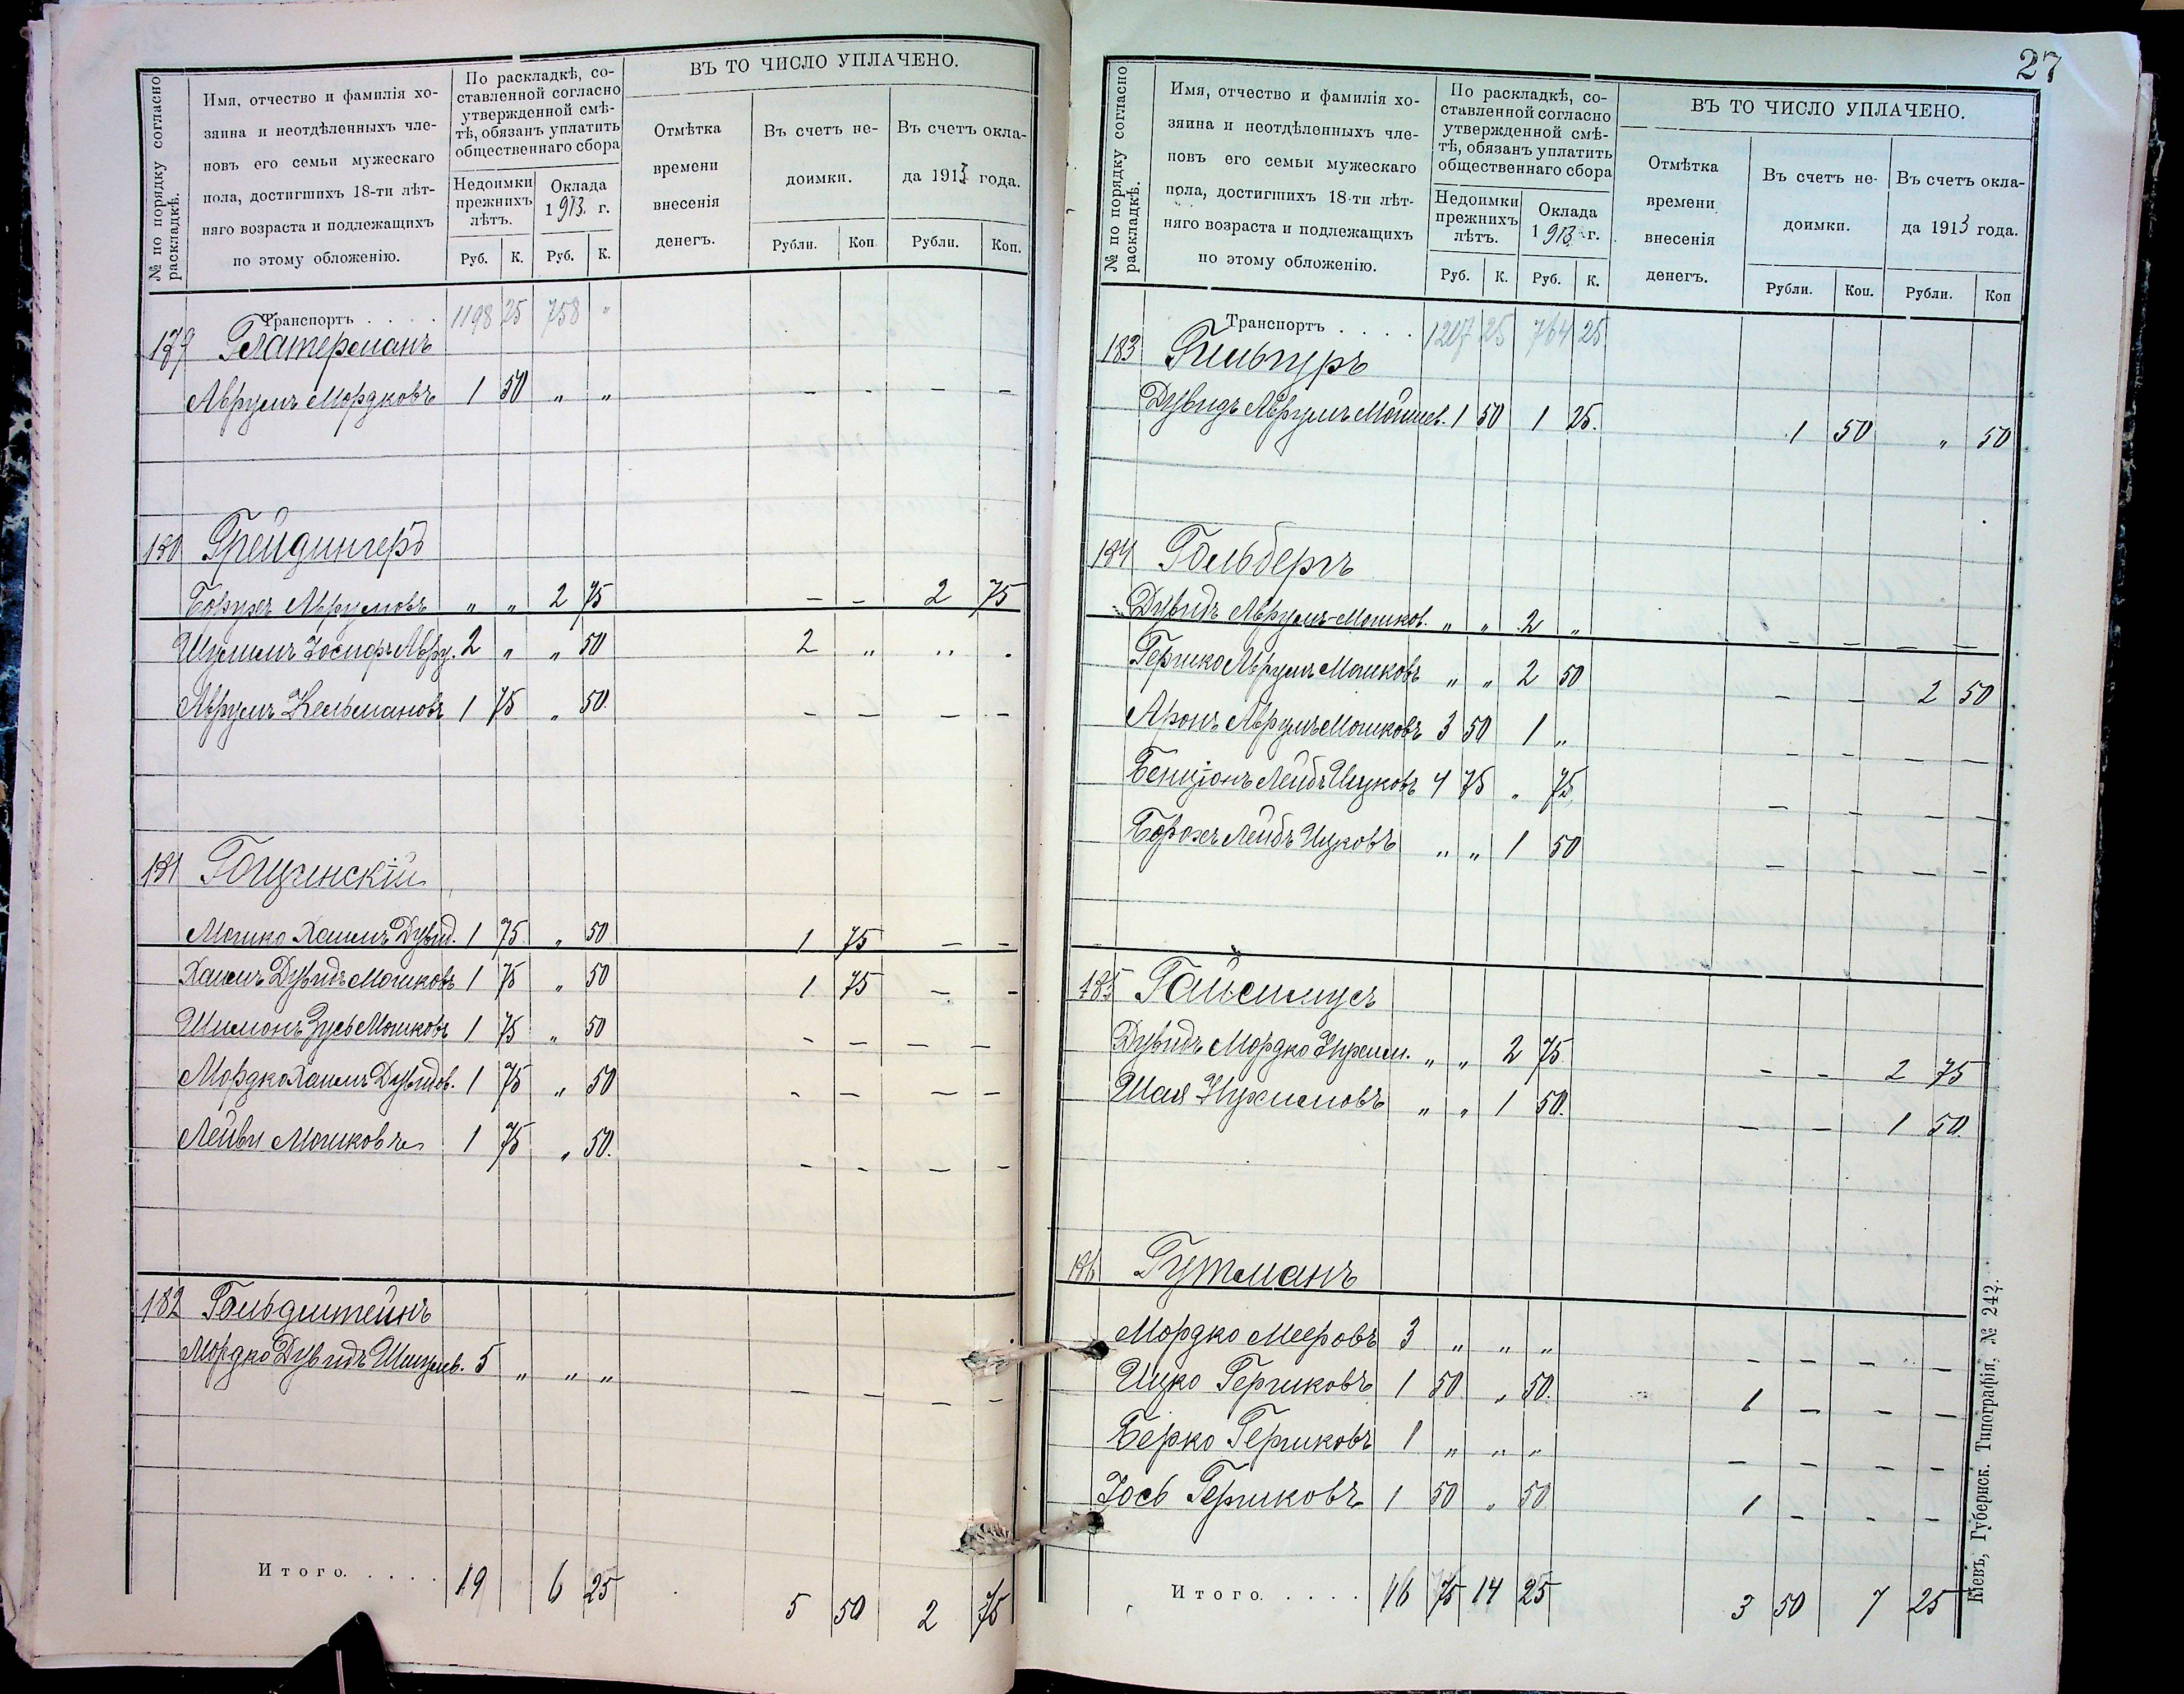 № по порядку согласно раскладкѣ.
Имя, отчество и фамилія хозяина и неотдѣленныхъ членовъ его семьи мужескаго пола, достигшихъ 18-ти лѣтняго возраста и подлежащихъ по этому обложенію.
По раскладкѣ, составленной согласно утвержденной смѣтѣ, обязанъ уплатить общественнаго сбора
Недоимки прежнихъ лѣтъ.
Оклада 1913 г.
Руб. К. Руб. К.
ВЪ ТО ЧИСЛО УПЛАЧЕНО.
Отмѣтка времени внесенія денегъ.
Въ счетъ недоимки.
Въ счетъ оклада 1913 года.
Рубли. Коп Рубли. Коп.
Транспортъ . . . . 1198 25 758 "
179 Глатерманъ
Аврумъ Мордковъ 1 50 " " – – – –
180 Грейдингеръ
Борухъ Аврумовъ " " 2 75 – – 2 75
Шулимъ Іосифъ Авру. 2 " " 50 2 " "
Аврумъ Кельмановъ 1 75 " 50. – – – –
181 Гощинскій
Мошко Хаимъ Дувид. 1 75 " 50 1 75 – –
Хаимъ Дувидъ Мошковъ 1 75 " 50 1 75 – –
Шимонъ Зусь Мошковъ 1 75 " 50 – – – –
Мордко Хаимъ Дувидов. 1 75 " 50 – – – –
Лейви Мошковъ 1 75 " 50. – – – –
182 Гольдштейнъ
Мордко Дувидъ 5 " " " – – – –
Итого. . . . . 19 6 25 5 50 2 75
27
№ по порядку согласно раскладкѣ.
Имя, отчество и фамилія хозяина и неотдѣленныхъ членовъ его семьи мужескаго пола, достигшихъ 18-ти лѣтняго возраста и подлежащихъ по этому обложенію.
По раскладкѣ, составленной согласно утвержденной смѣтѣ, обязанъ уплатить общественнаго сбора
Недоимки прежнихъ лѣтъ.
Оклада 1913 г.
Руб. К. Руб. К.
ВЪ ТО ЧИСЛО УПЛАЧЕНО.
Отмѣтка времени внесенія денегъ.
Въ счетъ недоимки.
Въ счетъ оклада 1913 года.
Рубли. Коп. Рубли. Коп
Транспортъ . . . . 1217 25 764 25
183 Гильпуръ
Дувидъ Аврумъ Мошков. 1 50 1 25. 1 50 " 50
184 Гольбергъ
Дувидъ Аврумъ-Мошков. " " 2 " – – – –
Гершко Аврумъ Мошковъ " " 2 50 – – 2 50
Аронъ Аврумъ Мошковъ 3 50 1 " – – – –
Бенціонъ Лейбъ Ицковъ 4 75 " 75 – – – –
Борохъ Лейбъ Ицковъ " " 1 50 – – – –
185 Гойсимусъ
Дувидъ Мордко Нухим. " " 2 75 – – 2 75
Шая Нухимовъ " " 1 50. – – 1 50.
186 Гутманъ
Мордко Мееровъ 3 " " " – – – –
Ицко Гершковъ 1 50 " 50. 1 – – –
Берко Гершковъ 1 " " " – – – –
Іось Гершковъ 1 50 " 50 1 – – –
Итого. . . . . 16 75 14 25 3 50 7 25
Кіевъ, Губернск. Типографія, № 242.